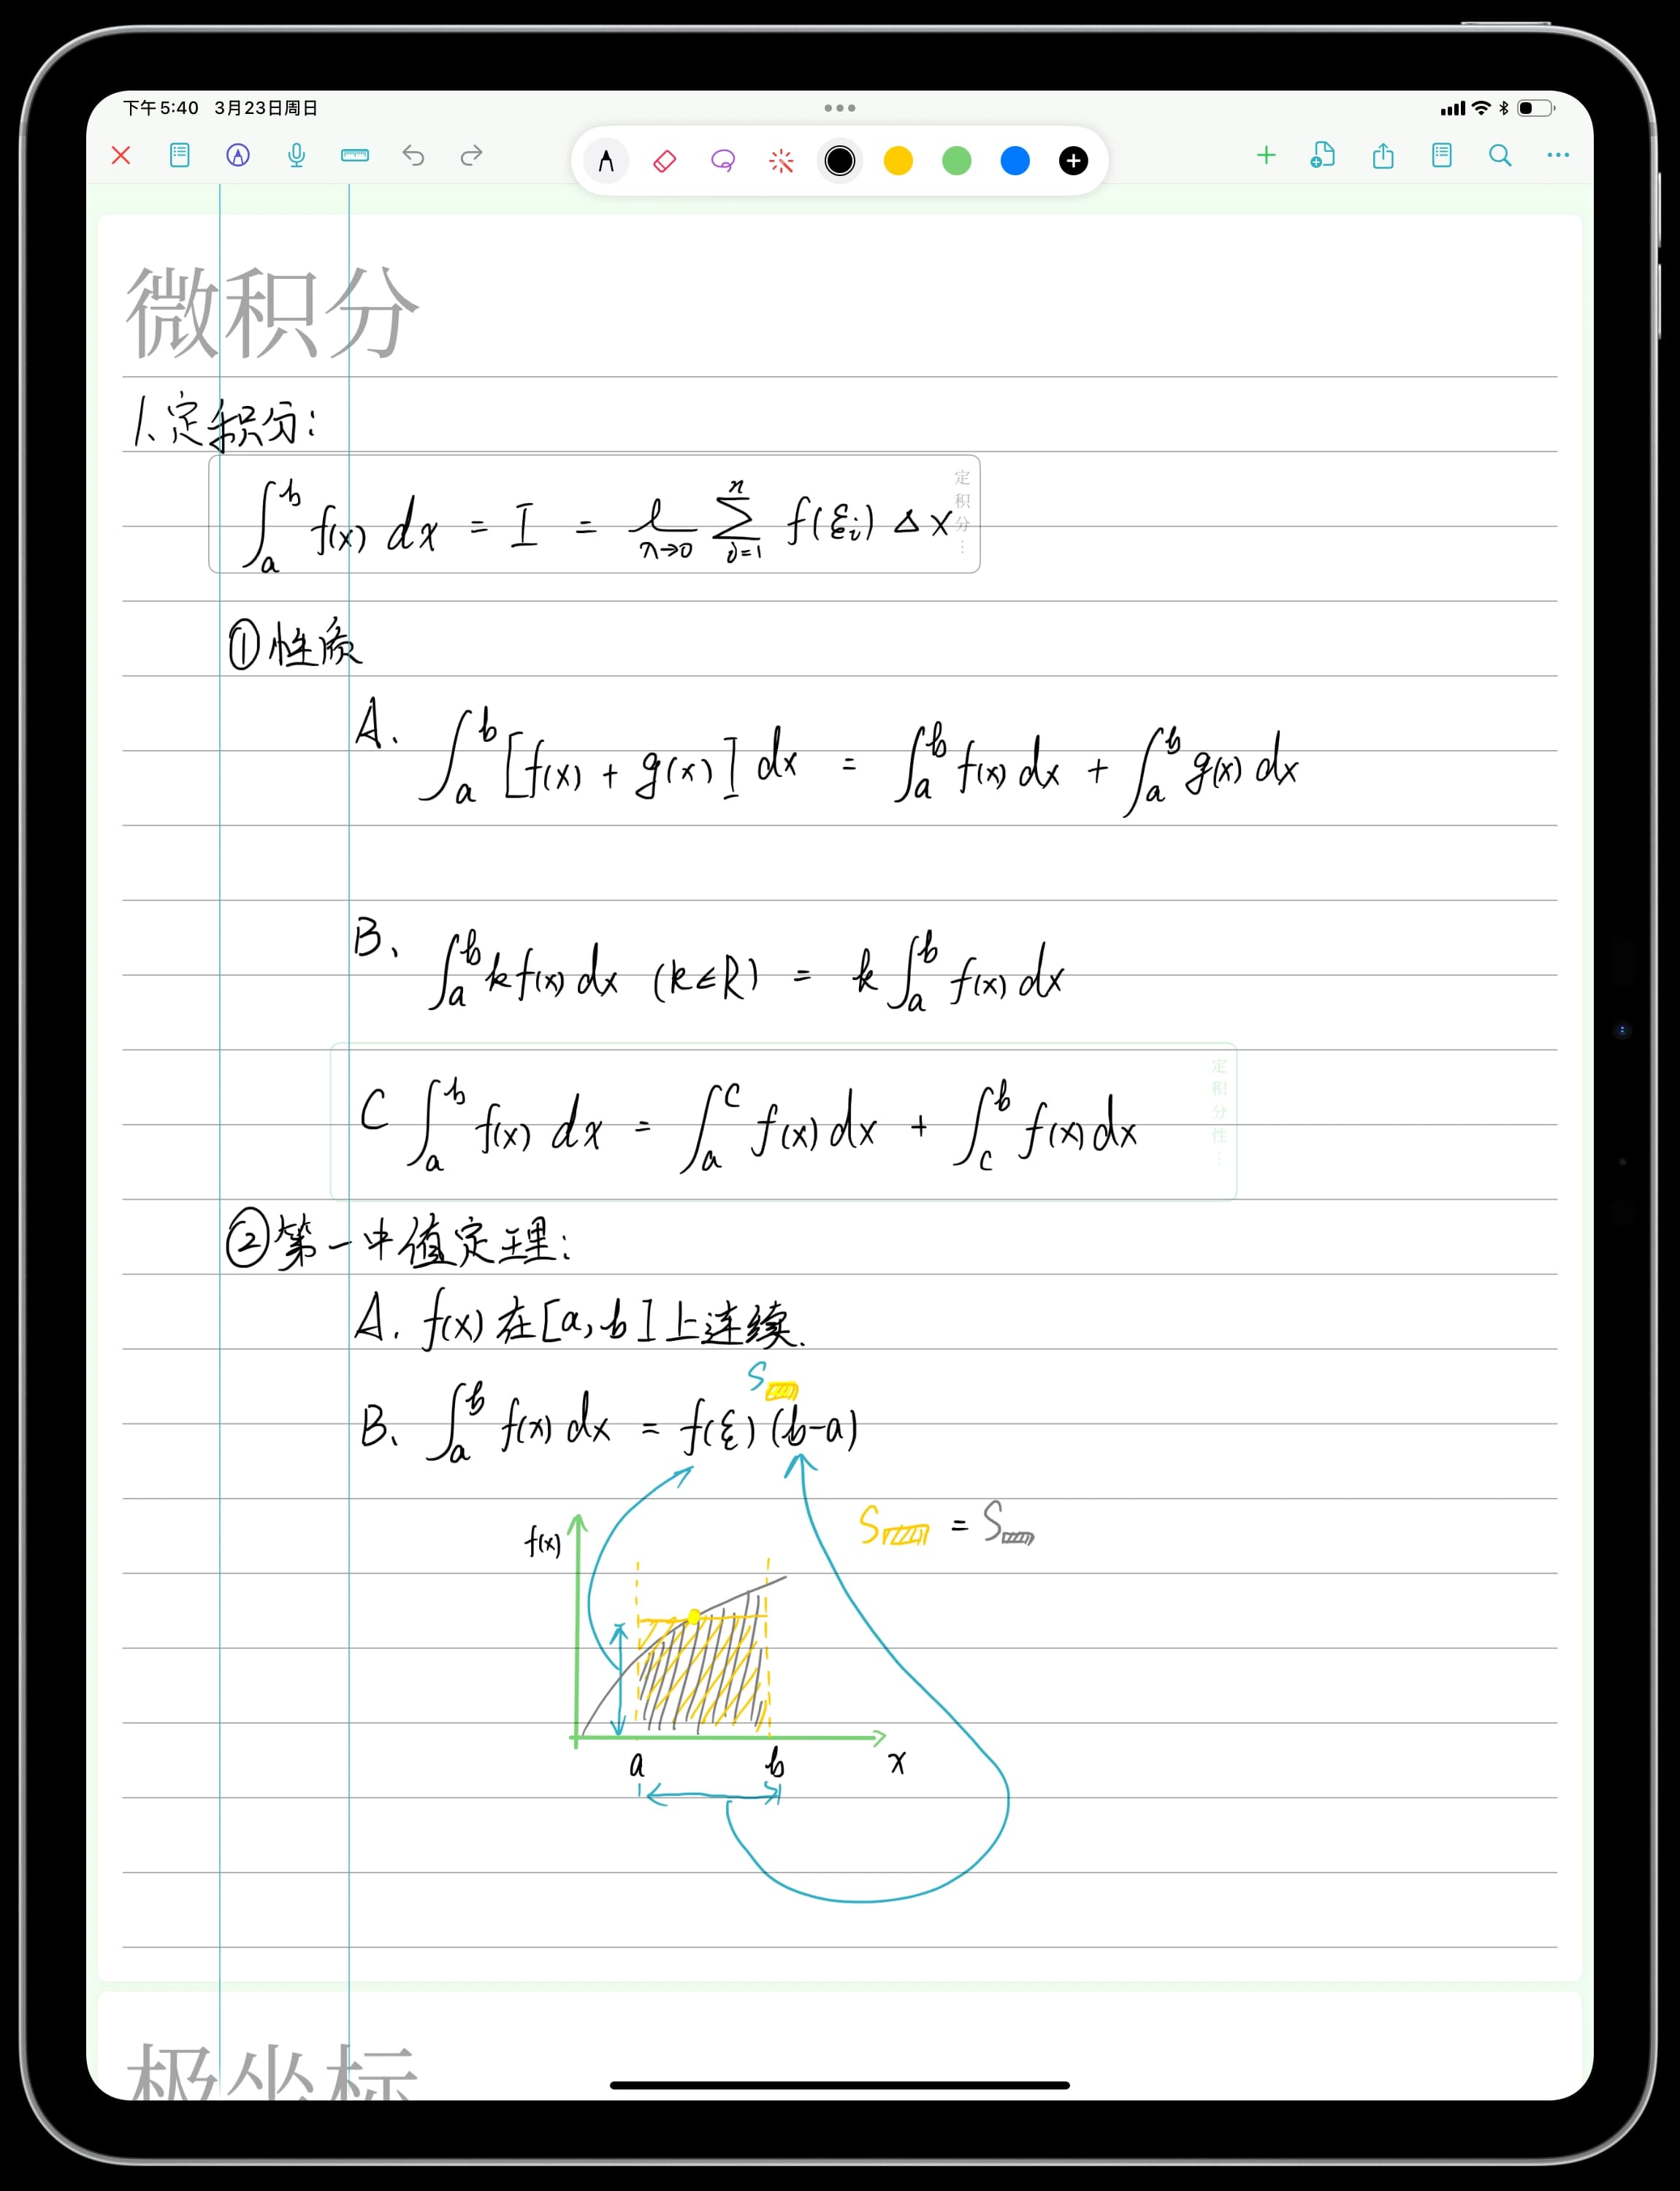 下午5:40 3月23日周日
微积分
1、定积分:
∫_a^b f(x) dx = I = l_{λ→0} ∑_{i=1}^n f(ξi) Δx
定积分…
①性质
A. ∫_a^b [f(x) + g(x)] dx = ∫_a^b f(x) dx + ∫_a^b g(x) dx
B、 ∫_a^b k f(x) dx (k∈R) = k ∫_a^b f(x) dx
C ∫_a^b f(x) dx = ∫_a^c f(x) dx + ∫_c^b f(x) dx
定积分性…
②第一中值定理:
A. f(x) 在 [a, b] 上连续.
S
B、 ∫_a^b f(x) dx = f(ξ) (b-a)
S = S
f(x)
a b x
极坐标